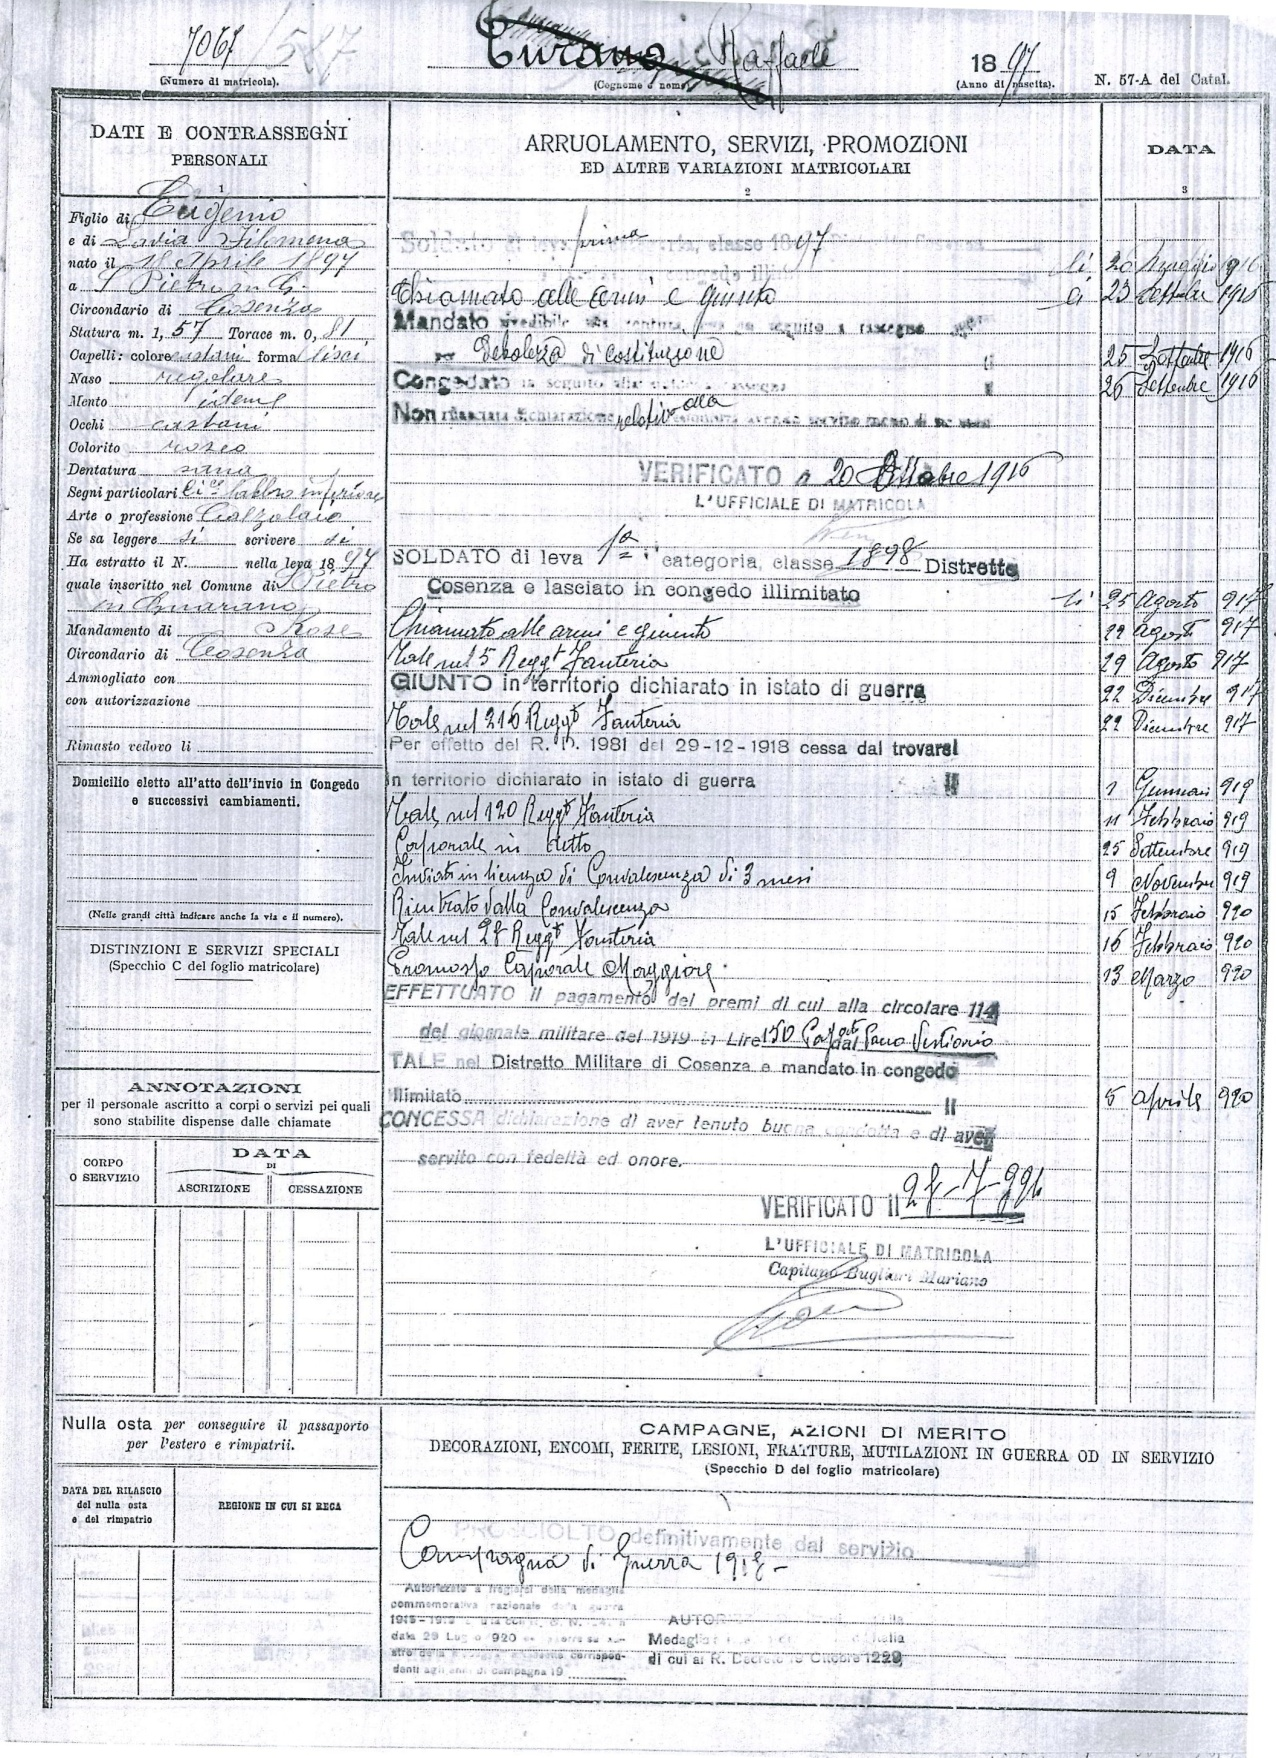 7067
(Numero di matricola).
Turano Raffaele
(Cognome e nome)
1897
(Anno di nascita).
N. 57-A del Catal.
DATI E CONTRASSEGNI
PERSONALI
1
Figlio di Eugenio
e di Ladia Filomena
nato il 18 Aprile 1897
a S Pietro in G.
Circondario di Cosenza
Statura m. 1, 57 Torace m. 0, 81
Capelli: colore castani forma lisci
Naso regolare
Mento idem
Occhi castani
Colorito roseo
Dentatura sana
Segni particolari labbro inferiore
Arte o professione Calzolaio
Se sa leggere si scrivere si
Ha estratto il N. nella leva 1897
quale inscritto nel Comune di S Pietro
in Guarano
Mandamento di Rose
Circondario di Cosenza
Ammogliato con
con autorizzazione
Rimasto vedovo li
Domicilio eletto all'atto dell'invio in Congedo
e successivi cambiamenti.
(Nelle grandi città indicare anche la via e il numero).
DISTINZIONI E SERVIZI SPECIALI
(Specchio C del foglio matricolare)
ANNOTAZIONI
per il personale ascritto a corpi o servizi pei quali
sono stabilite dispense dalle chiamate
CORPO
O SERVIZIO
DATA
DI
ASCRIZIONE
CESSAZIONE
Nulla osta per conseguire il passaporto
per l'estero e rimpatrii.
DATA DEL RILASCIO
del nulla osta
e del rimpatrio
REGIONE IN CUI SI RECA
ARRUOLAMENTO, SERVIZI, PROMOZIONI
ED ALTRE VARIAZIONI MATRICOLARI
2
DATA
3
Soldato di leva prima categoria, classe 1897
congedo illimitato li 20 Maggio 1916
Chiamato alle armi e giunto li 23 Settembre 1916
Mandato rivedibile alla ventura leva in seguito a rassegna
per debolezza di costituzione li 25 Settembre 1916
Congedato in seguito alla rassegna li 26 Settembre 1916
Non rilasciata dichiarazione relativa alla condotta avendo servito meno di
VERIFICATO a 20 Ottobre 1916
L'UFFICIALE DI MATRICOLA
SOLDATO di leva 1a categoria, classe 1898 Distretto
Cosenza e lasciato in congedo illimitato li 25 Agosto 917
Chiamato alle armi e giunto 29 Agosto 917
Tale nel 5 Reggt Fanteria 29 Agosto 917
GIUNTO in territorio dichiarato in istato di guerra 22 Dicembre 917
Tale nel 216 Reggt Fanteria 22 Dicembre 917
Per effetto del R. D. 1981 del 29-12-1918 cessa dal trovarsi
in territorio dichiarato in istato di guerra li 1 Gennaio 919
Tale nel 120 Reggt Fanteria 11 Febbraio 919
Caporale in detto 25 Settembre 919
Inviato in licenza di Convalescenza di 3 mesi 9 Novembre 919
Rientrato dalla Convalescenza 15 Febbraio 920
Tale nel 27 Reggt Fanteria 16 Febbraio 920
Promosso Caporale Maggiore 13 Marzo 920
EFFETTUATO il pagamento dei premi di cui alla circolare 114
del giornale militare del 1919 in Lire 150 dal Pacco Vestiario
TALE nel Distretto Militare di Cosenza e mandato in congedo
illimitato li 5 Aprile 920
CONCESSA dichiarazione di aver tenuto buona condotta e di aver
servito con fedeltà ed onore.
VERIFICATO il
L'UFFICIALE DI MATRICOLA
Capitano Bugliari Mariano
CAMPAGNE, AZIONI DI MERITO
DECORAZIONI, ENCOMI, FERITE, LESIONI, FRATTURE, MUTILAZIONI IN GUERRA OD IN SERVIZIO
(Specchio D del foglio matricolare)
PROSCIOLTO definitivamente dal servizio
Campagna di Guerra 1918 -
Autorizzato a fregiarsi della medaglia
commemorativa nazionale della guerra
data 29 Luglio 920
denti agli anni di campagna 19
Medaglia
di cui al R. Decreto